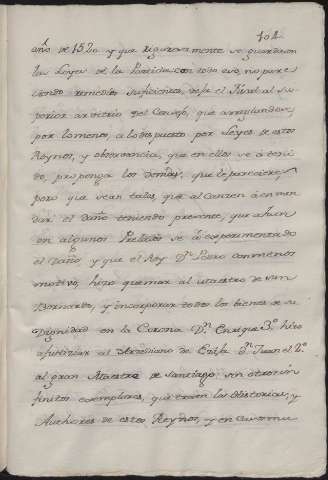 104
año de 1520 y que rigurosamente se guardasen
las Leyes de la Partida con todo eso, no pare
ciendo remedios suficientes, deja el Fiscal al su
perior arvitrio del Consejo, que arreglandose
por lo menos, a lo dispuesto por Leyes de estos
Reynos, y observancia, que en ellos se á teni
do, proponga los demas, que le pareciere,
pero que sean tales, que alcancen á enmen
dar el daño teniendo presente, que aun
en algunos Prelados se á experimentado
el daño, y que el Rey Dn. Pedro con menos
motivo, hizo quemar al Maestro de San
Bernardo, y incorporar todos los bienes de su
Dignidad en la Corona Dn. Enrique 3º hizo
ajusticiar al Arcediano de Dn. Juan el 2º
al gran Maestre de Santiago, sin otros in
finitos exemplares, que traen las Historias, y
Authores de estos Reynos, y en